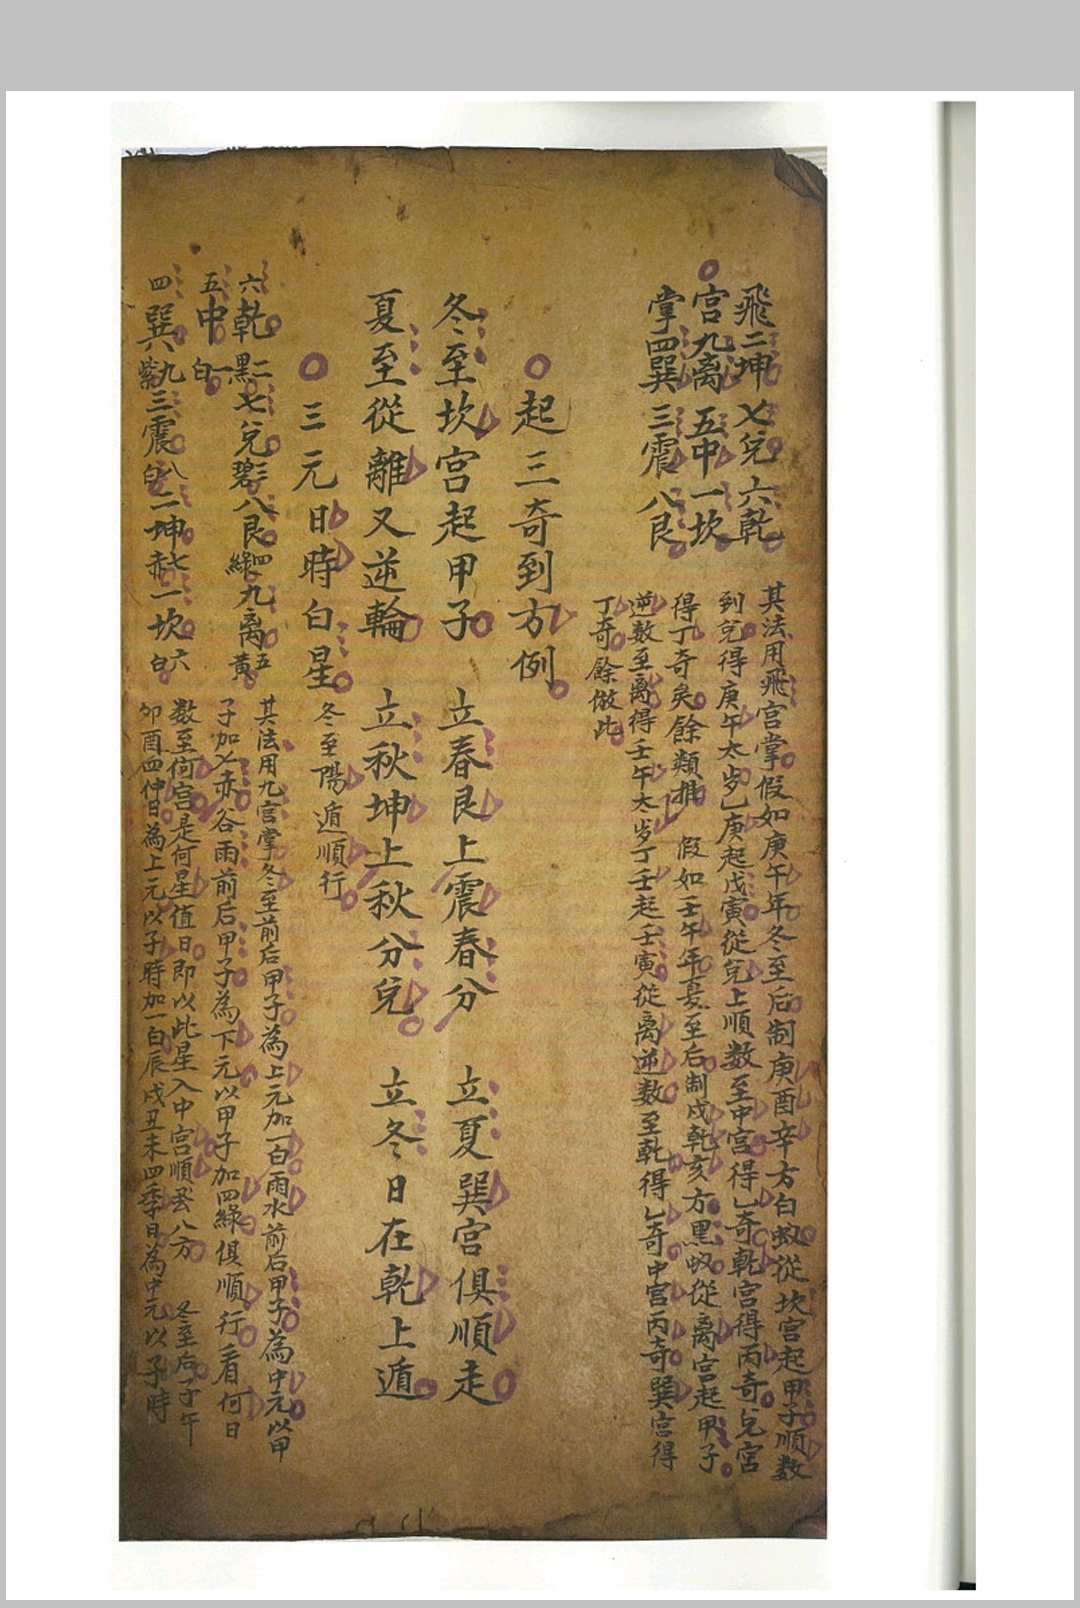 飛二坤 七兌 六乾
宮九离 五中 一坎
掌四巽 三震 八艮
其法用飛宮掌假如庚午年冬至后制庚酉辛方白蚁從坎宮起甲子順数
到兌得庚午太岁乚庚起戊寅從兌上順数至中宮得乚奇乾宮得丙奇兌宮
得丁奇矣餘類推 假如壬午年夏至后制戍乾亥方黑蚁從离宮起甲子
逆数至离得壬午太岁丁壬起壬寅從离逆数至乾得乚奇中宮丙奇巽宮得
丁奇餘倣此
起三奇到方例
冬至坎宮起甲子 立春艮上震春分 立夏巽宮俱順走
夏至從離又逆輪 立秋坤上秋分兌 立冬日在乾上遁
三元日時白星 冬至陽遁順行
六乾二黑七兌三碧八艮四綠九离五黃
五中一白
四巽九紫三震八白二坤七赤一坎六白
其法用九宮掌冬至前后甲子為上元加一白雨水前后甲子為中元以甲
子加七赤谷雨前后甲子為下元以甲子加四綠俱順行看何日
数至何宮是何星值日即以此星入中宮順飛八方 冬至后子午
卯酉四仲日為上元以子時加一白辰戍丑未四季日為中元以子時